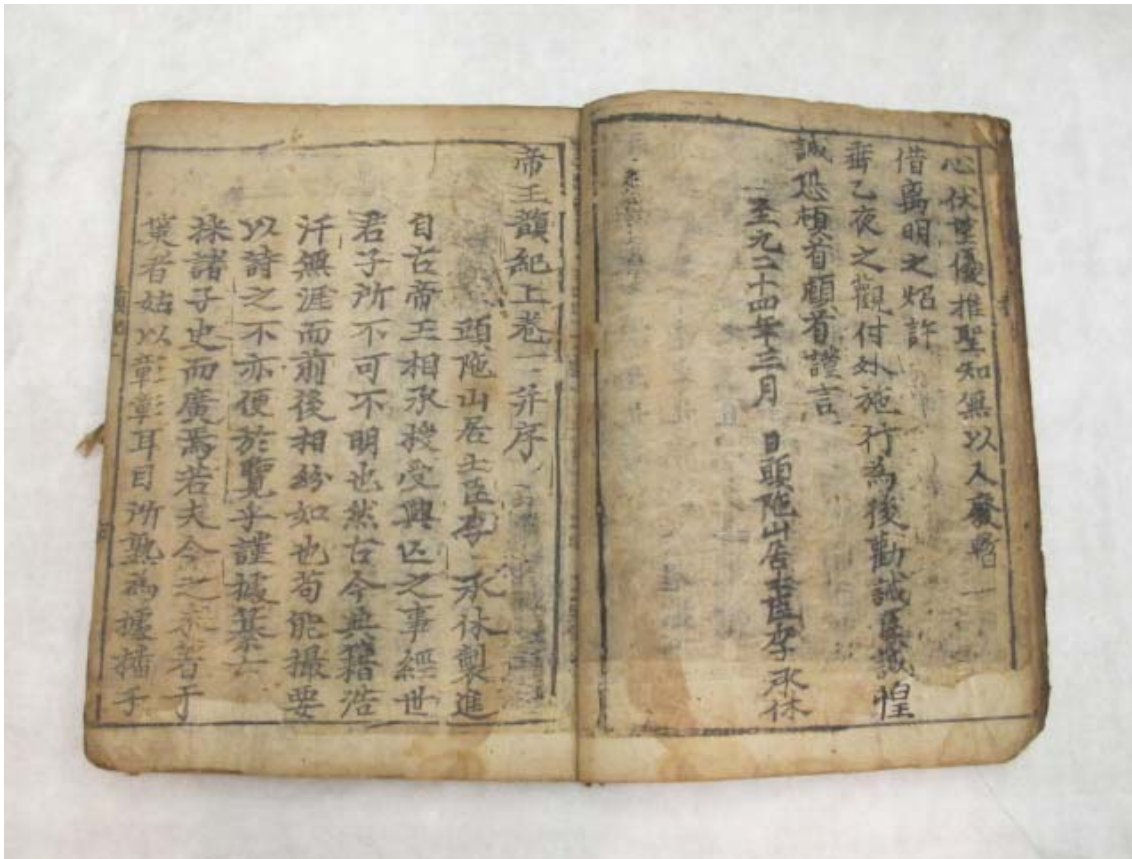 心伏望優推聖知無以人廢暫
借离明之炤許
垂乙夜之觀付外施行為後勸誡臣誠惶
誠恐頓首頓首謹言
至元二十四年三月 日頭陁山居士臣李承休
帝王韻紀上卷一并序
頭陁山居士臣李 承休製進
自古帝王相承授受興亡之事經世
君子所不可不明也然古今典籍浩
汗無涯而前後相紛如也苟能撮要
以詩之不亦便於覽乎謹據纂古
採諸子史而廣焉若夫今之未著于
策者姑以彰彰耳目所熟為據播于